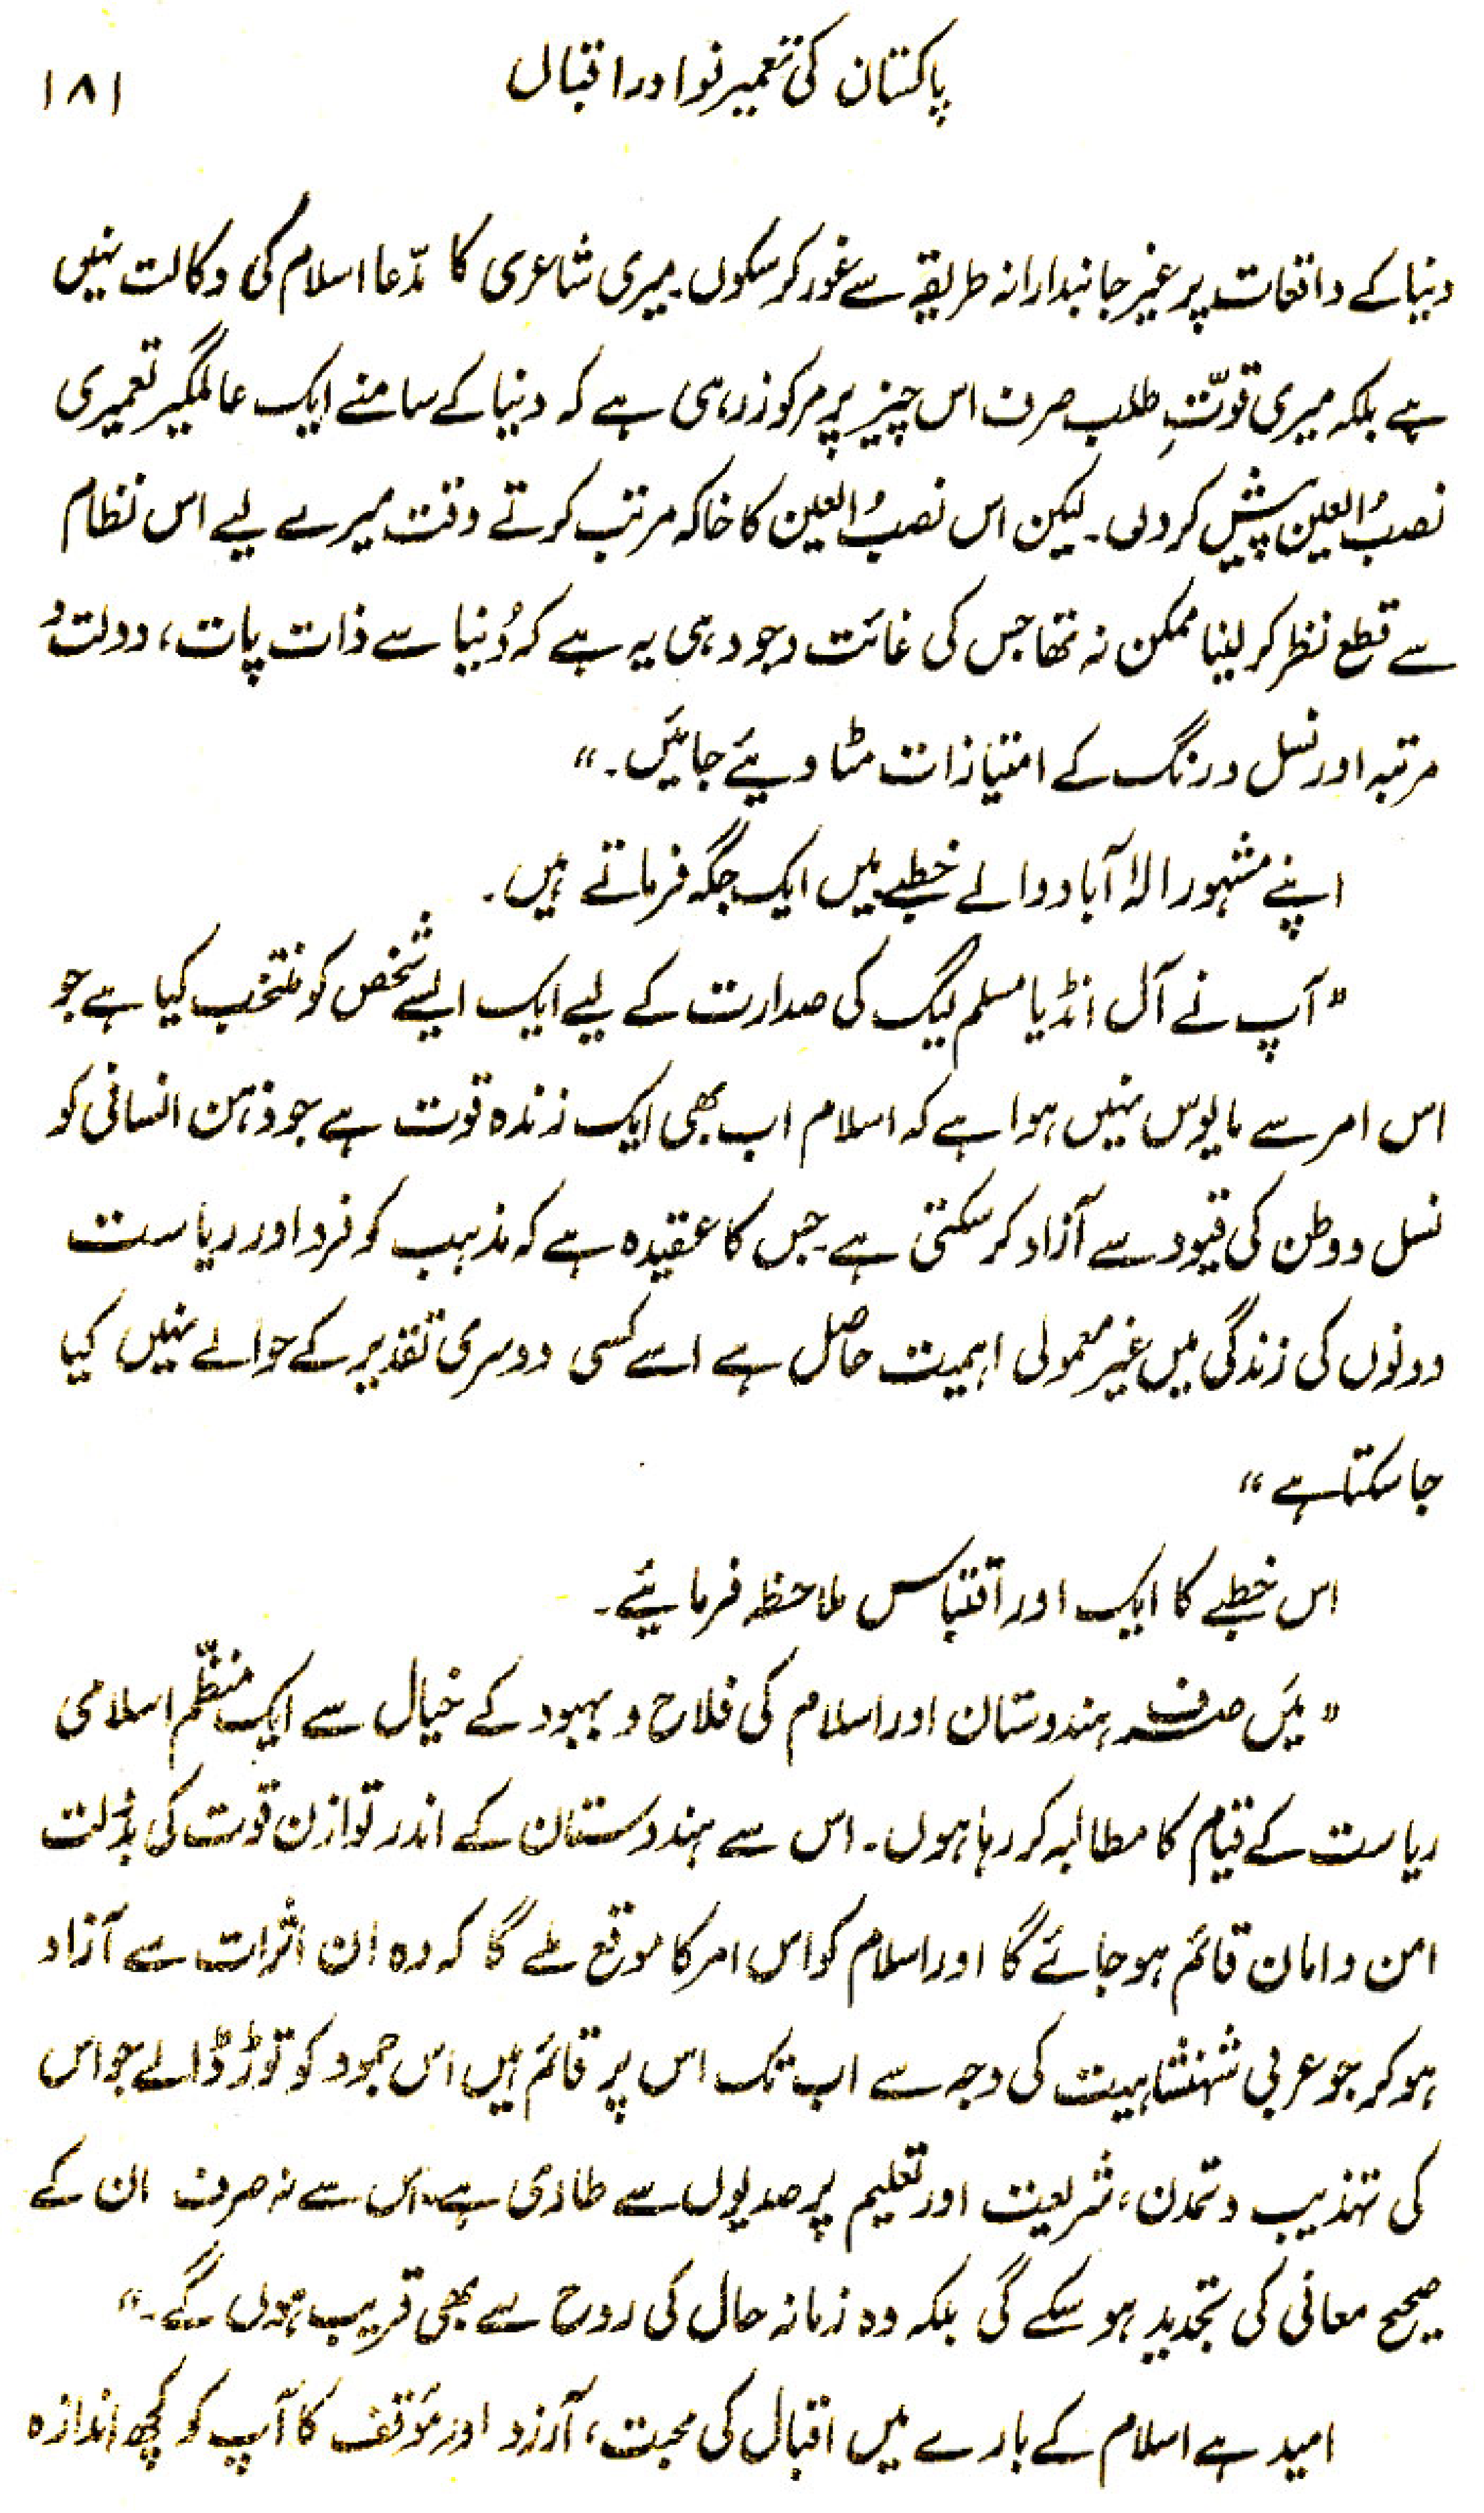 پاکستان کی تعمیر نو اور اقبال ۱۸۱
دنیا کے واقعات پر غیر جانبدارانہ طریقے سے غور کر سکوں۔ میری شاعری کا مدّعا اسلام کی وکالت نہیں
ہے بلکہ میری قوّتِ طلب صرف اس چیز پر مرکوز رہی ہے کہ دنیا کے سامنے ایک عالمگیر تعمیری
نصبُ العین پیش کر دوں۔ لیکن اس نصبُ العین کا خاکہ مرتب کرتے وقت میرے لیے اس نظام
سے قطع نظر کر لینا ممکن نہ تھا جس کی غائت وجود ہی یہ ہے کہ دُنیا سے ذات پات، دولت و
مرتبہ اور نسل و رنگ کے امتیازات مٹا دیئے جائیں۔“
اپنے مشہور الہٰ آباد والے خطبے میں ایک جگہ فرماتے ہیں۔
”آپ نے آل انڈیا مسلم لیگ کی صدارت کے لیے ایک ایسے شخص کو منتخب کیا ہے جو
اس امر سے مایوس نہیں ہوا ہے کہ اسلام اب بھی ایک زندہ قوت ہے جو ذہن انسانی کو
نسل و وطن کی قیود سے آزاد کر سکتی ہے۔ جس کا عقیدہ ہے کہ مذہب کو فرد اور ریاست
دونوں کی زندگی میں غیر معمولی اہمیت حاصل ہے اسے کسی دوسری تقدیر کے حوالے نہیں کیا
جا سکتا ہے“
اس خطبے کا ایک اور اقتباس ملاحظہ فرمائیے۔
”میں صرف ہندوستان اور اسلام کی فلاح و بہبود کے خیال سے ایک منظّم اسلامی
ریاست کے قیام کا مطالبہ کر رہا ہوں۔ اس سے ہندوستان کے اندر توازن قوت کی بدولت
امن و امان قائم ہو جائے گا اور اسلام کو اس امر کا موقع ملے گا کہ وہ ان اثرات سے آزاد
ہو کر جو عربی شہنشاہیت کی وجہ سے اب تک اس پر قائم ہیں اس جمود کو توڑ ڈالے جو اس
کی تہذیب و تمدن، شریعت اور تعلیم پر صدیوں سے طاری ہے۔ اس سے نہ صرف ان کے
صحیح معانی کی تجدید ہو سکے گی بلکہ وہ زمانہ حال کی روح سے بھی قریب ہوں گے۔“
امید ہے اسلام کے بارے میں اقبال کی محبت، آرزو اور مؤقف کا آپ کو کچھ اندازہ